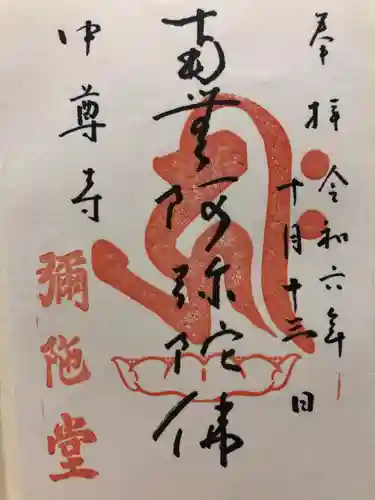 奉拝
令和六年
十月十三日
南無阿弥陀佛
中尊寺
彌陀堂